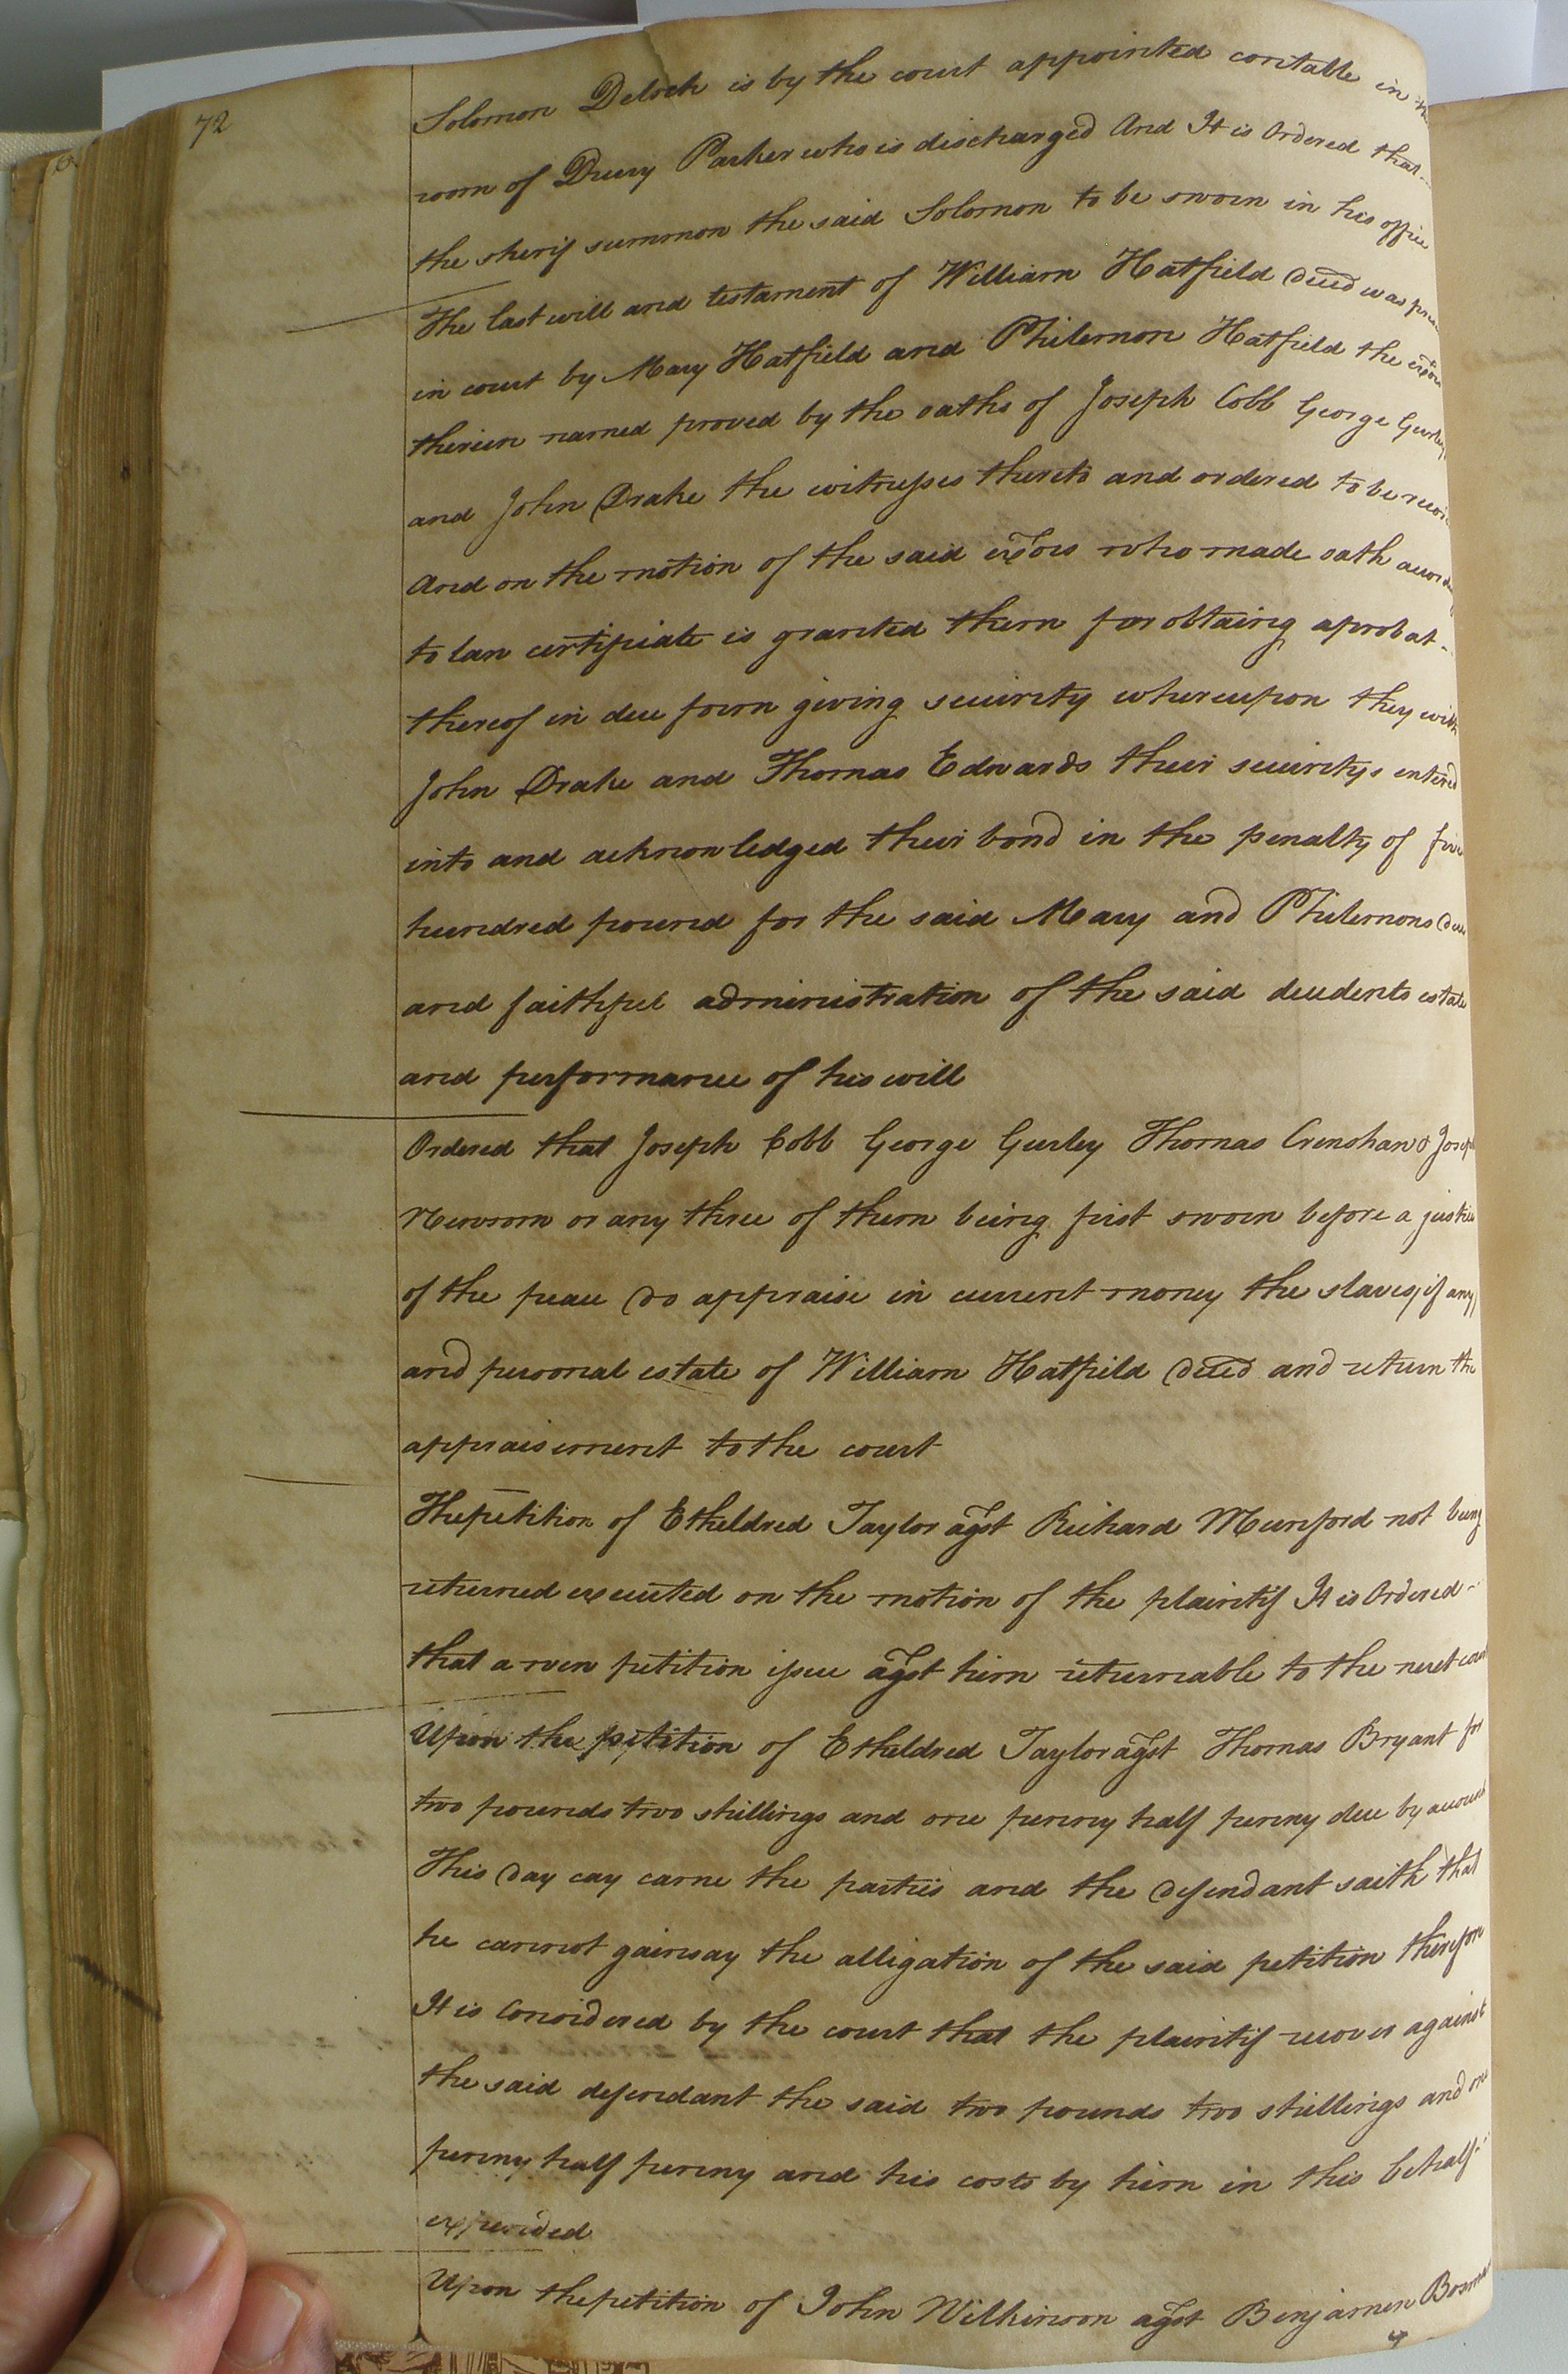 72
Solomon Deloch is by the court appointed contable in the
room of Drury Parker who is discharged And It is Ordered that
the sherif summon the said Solomon to be sworn in his office
The last will and testament of William Hatfield decd was
in court by Mary Hatfield and Philemon Hatfield the
therein named proved by the oaths of Joseph Cobb George Gurley
and John Drake the witnesses thereto and ordered to be
And on the motion of the said exors who made oath
to law certificate is granted them for obtaing a probat
thereof in due form giving security whereupon they with
John Drake and Thomas Edwards their securitys entered
into and acknowledged their bond in the penalty of five
hundred pound for the said Mary and Philemons due
and faithful administration of the said decedents estate
and performance of his will
Ordered that Joseph Cobb George Gurley Thomas Crenshaw & Joseph
Newsom or any three of them being first sworn before a justice
of the peace do appraise in current money the slaves, if any,
and personal estate of William Hatfield decd and return the
appraisement to the court
The petition of Etheldred Taylor agst Richard Munford not being
returned executed on the motion of the plaintif It is Ordered
that a new petition issue agst him returnable to the next court
Upon the petition of Etheldred Taylor agst Thomas Bryant for
two pounds two shillings and one penny half penny due by account
This day cay came the parties and the defendant saith that
he cannot gainsay the alligation of the said petition therefore
It is Considered by the court that the plaintif recover against
the said defendant the said two pounds two shillings and one
penny half penny and his costs by him in this behalf
expended
Upon the petition of John Wilkinson agst Benjamen